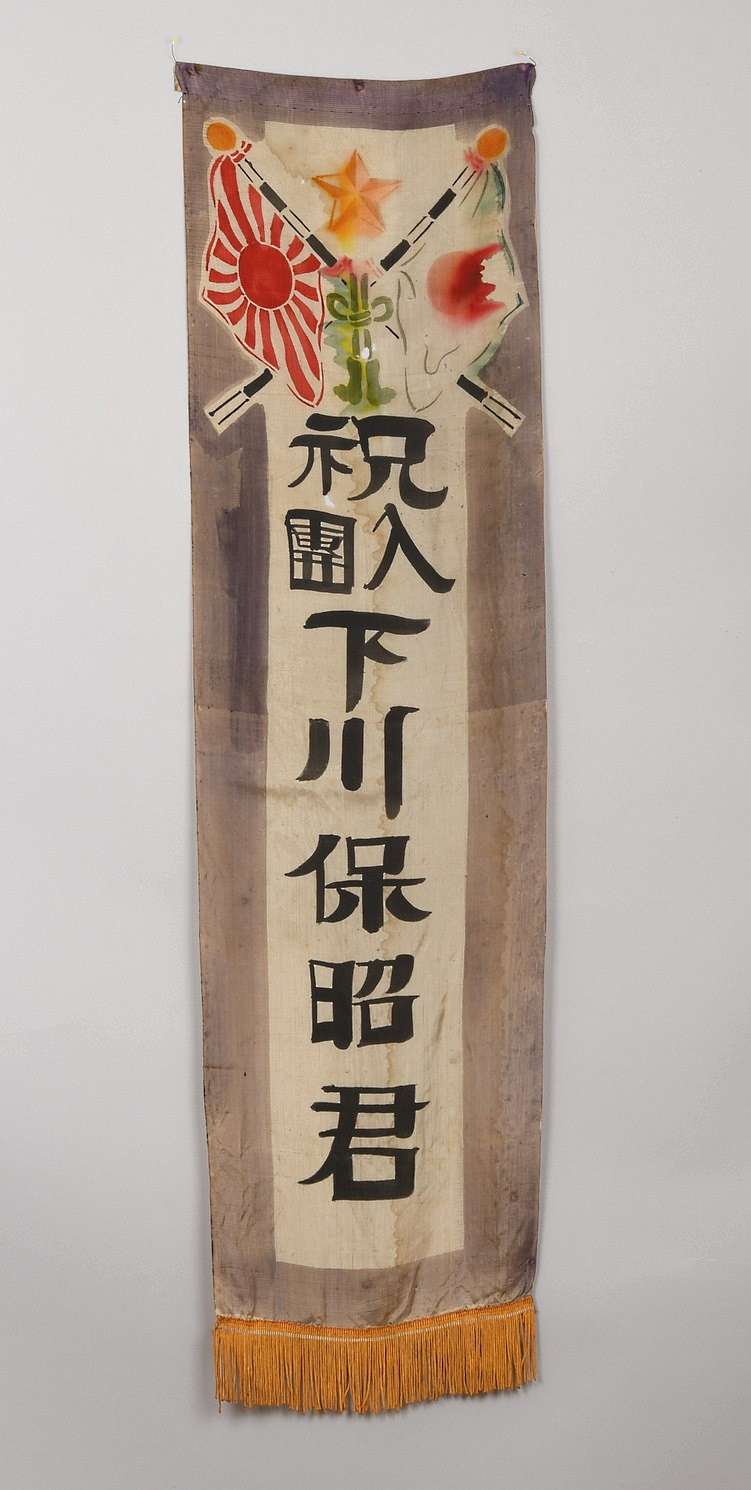 祝入團下川保昭君